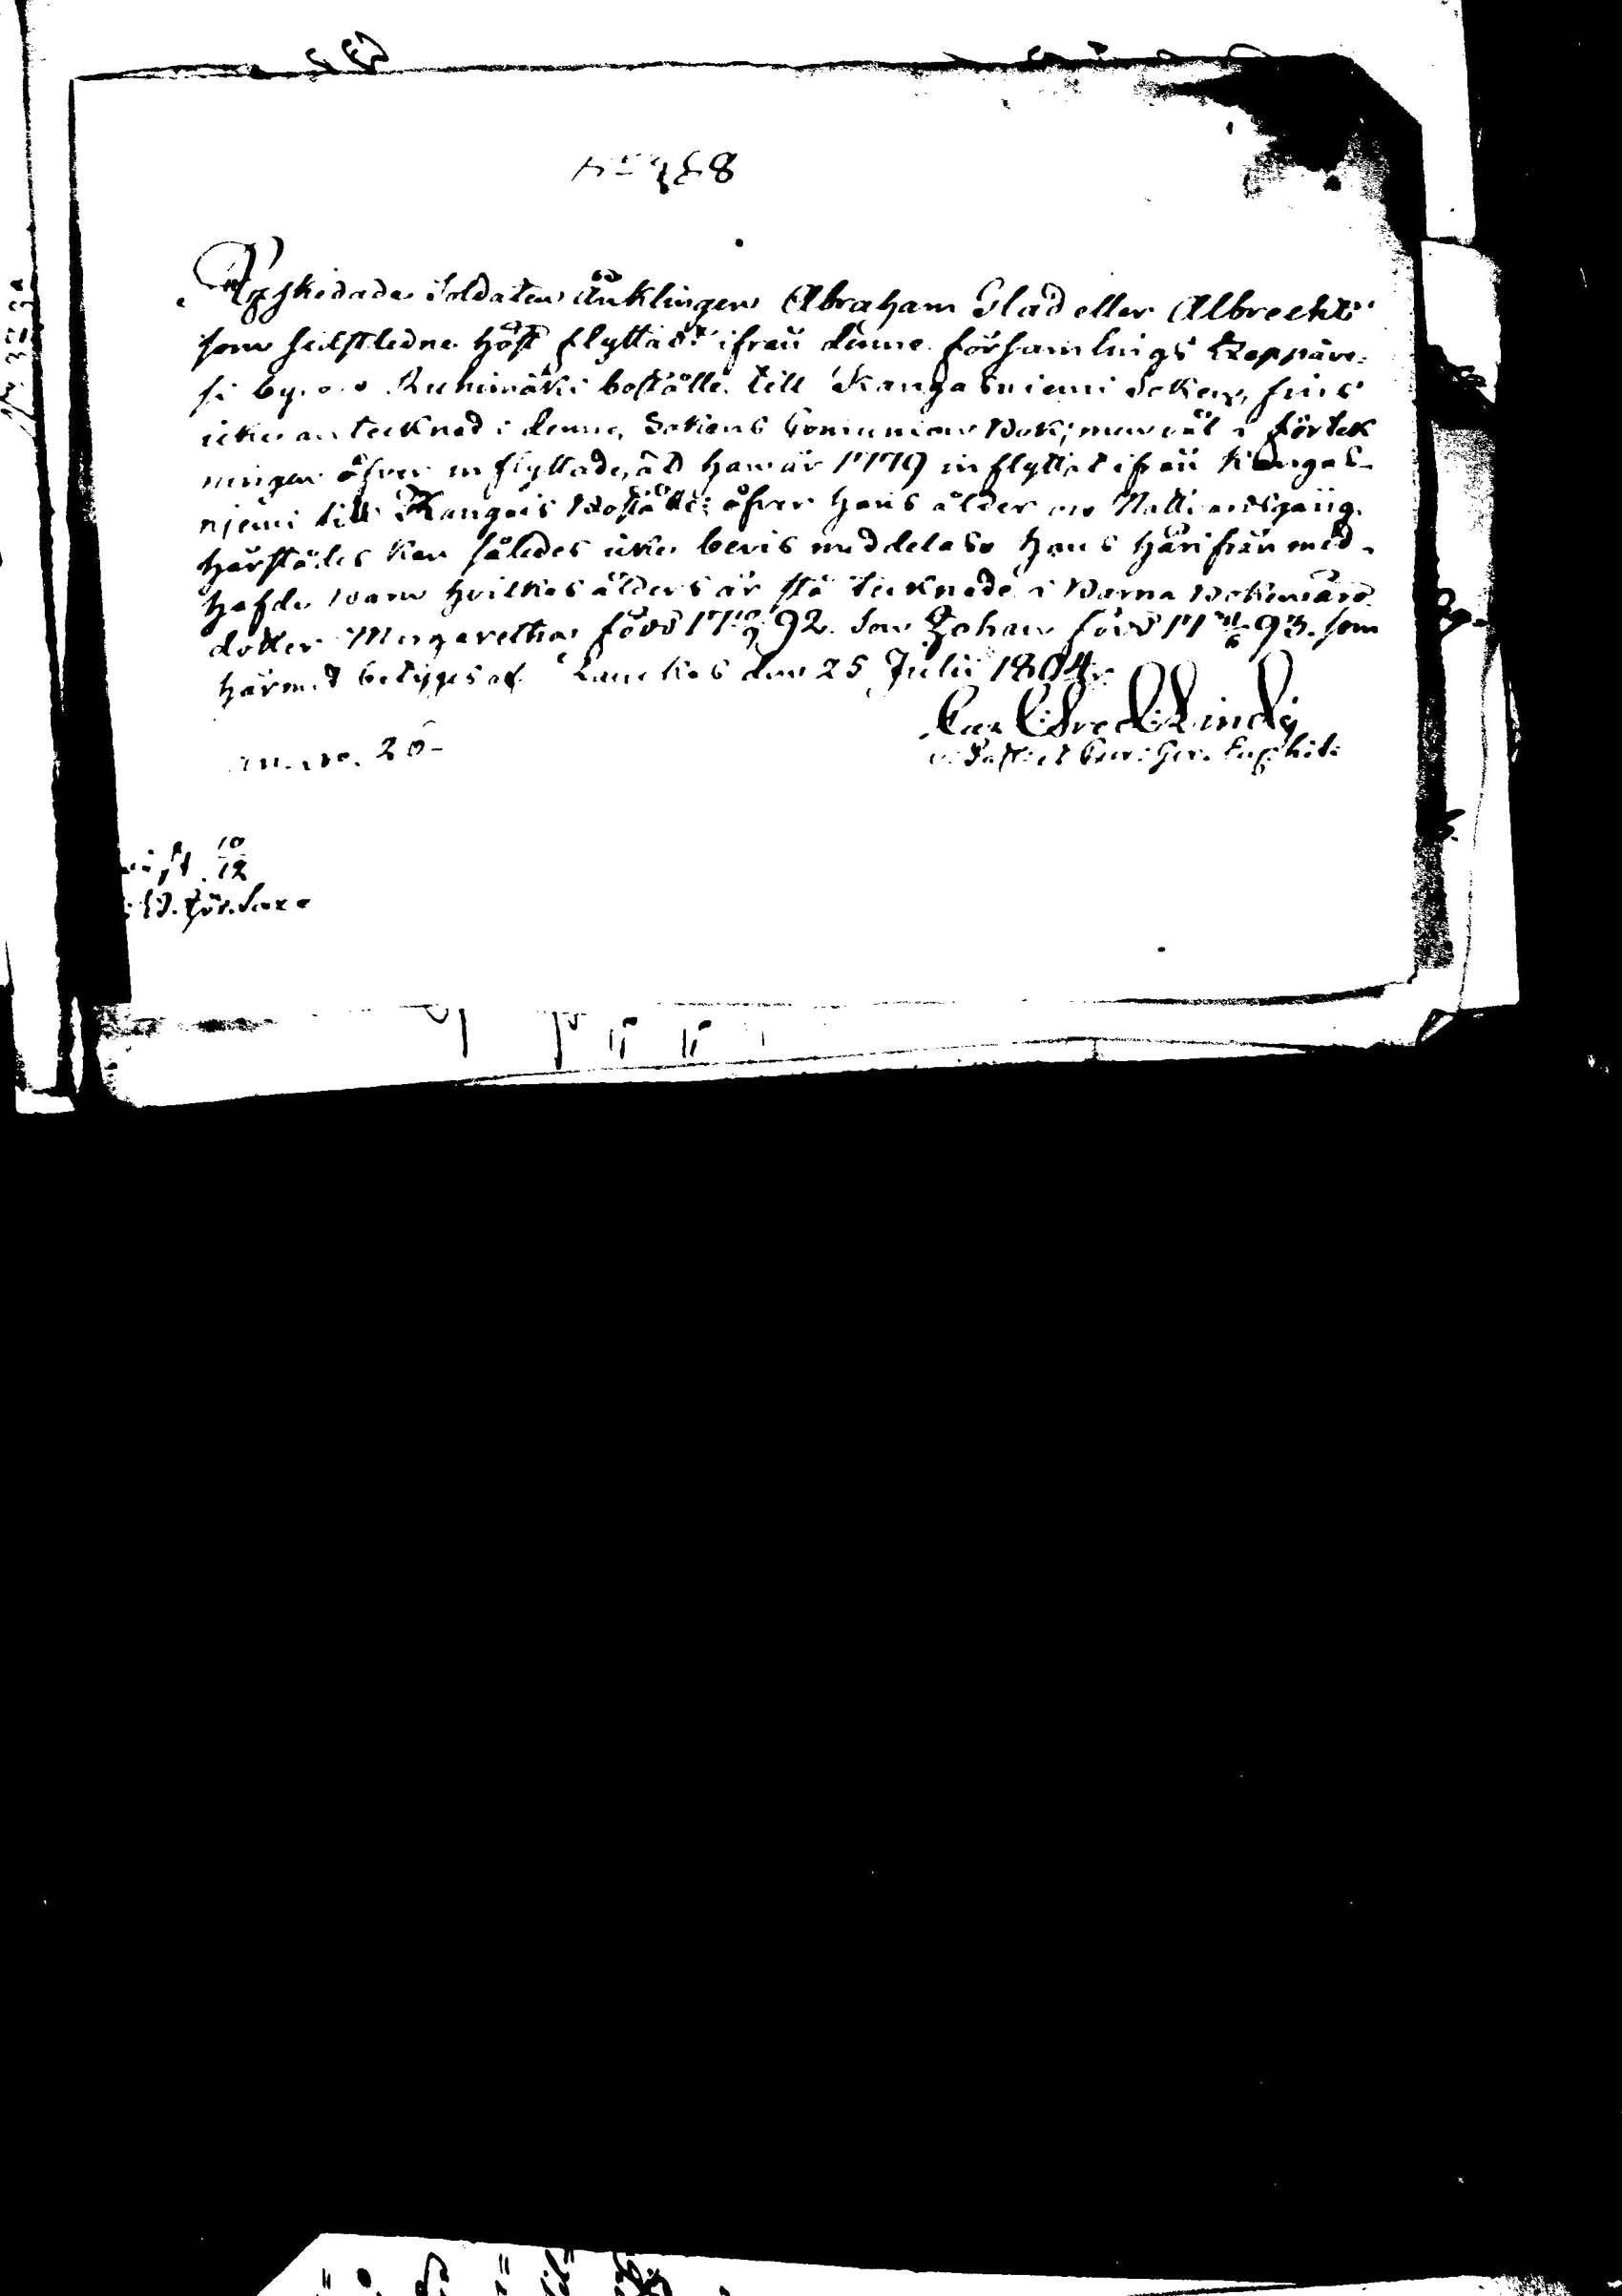 Afskedade Soldaten Änklingen Abraham Glad eller Albrecht
som sidstledne höst flyttadt ifrån denne församlings Leppäve-
si by o Ruhimäki boställe till Kangasniemi Soken, fins
icke antecknad i denne Sokens Comunion Bok; men väl i förtek
ningen öfver inflyttade, at han år 1779 inflyttat ifrån Kangas-
njemi till Kangais Boställe; öfver hans ålder o Nattvardsgång
härstädes kan således icke bevis meddelas hans härifrån med-
hafde barn hvilkas ålders år stå tecknade i Barna Boken äro
dotter Margaretha född 17 10/9 92. Son Johan född 17 93. som
härmed betyges af Laukas den 25 Julii 1804.
Carl Fred Lindh
20
10
12